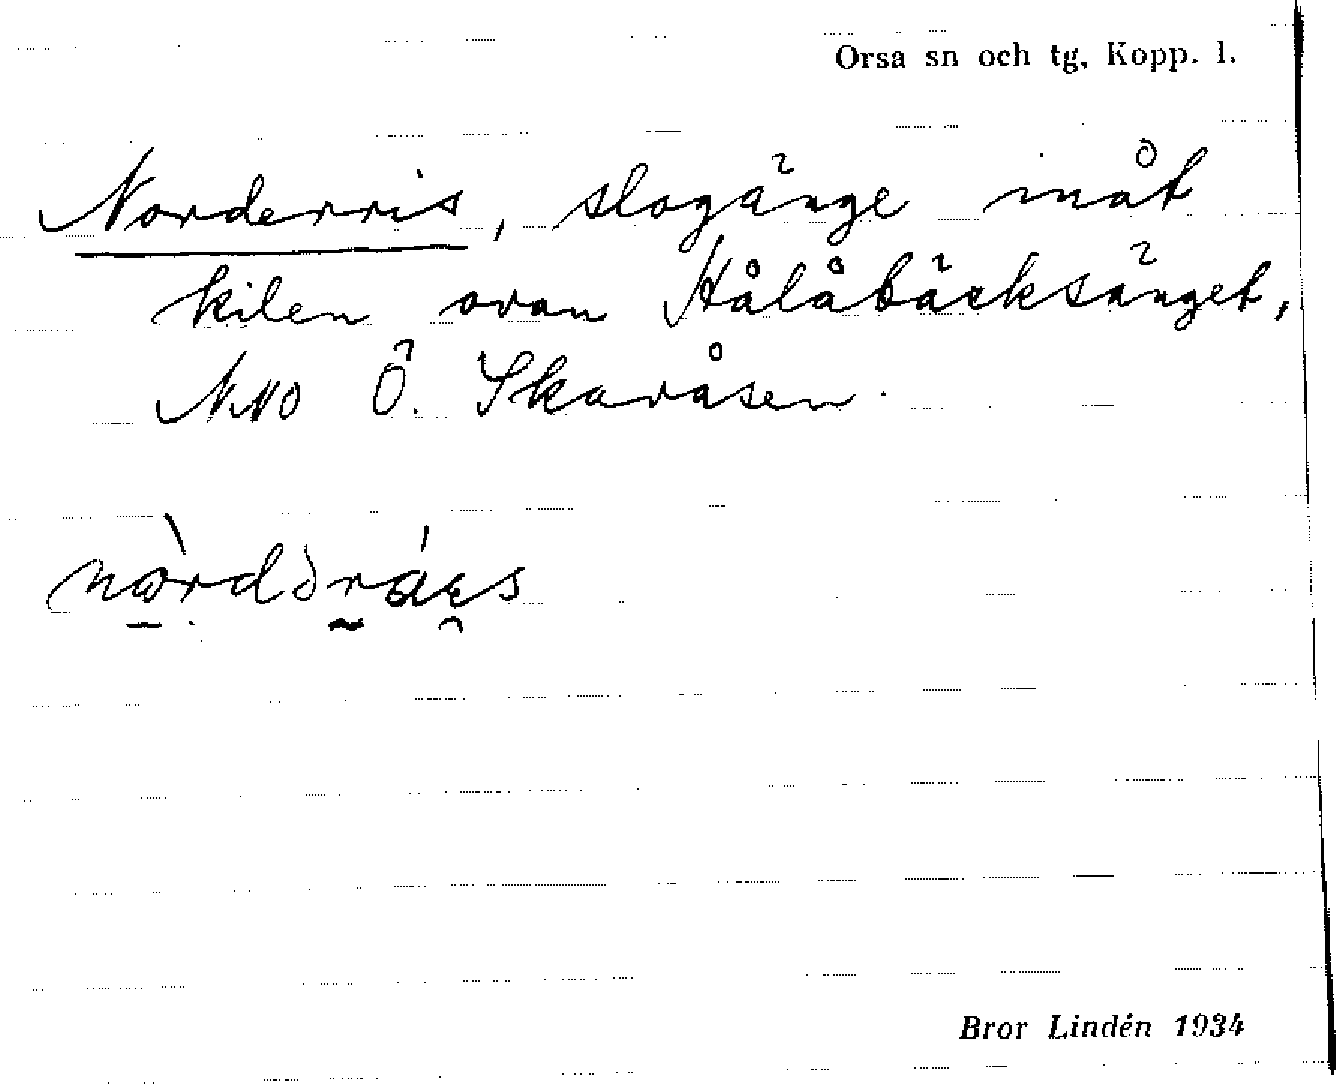 Orsa sn och tg, Kopp. l.
Norderris, slogänge inåt
kilen ovan Hålåbäcksänget,
NNO Ö. Skavåsen.
Bror Lindén 1934